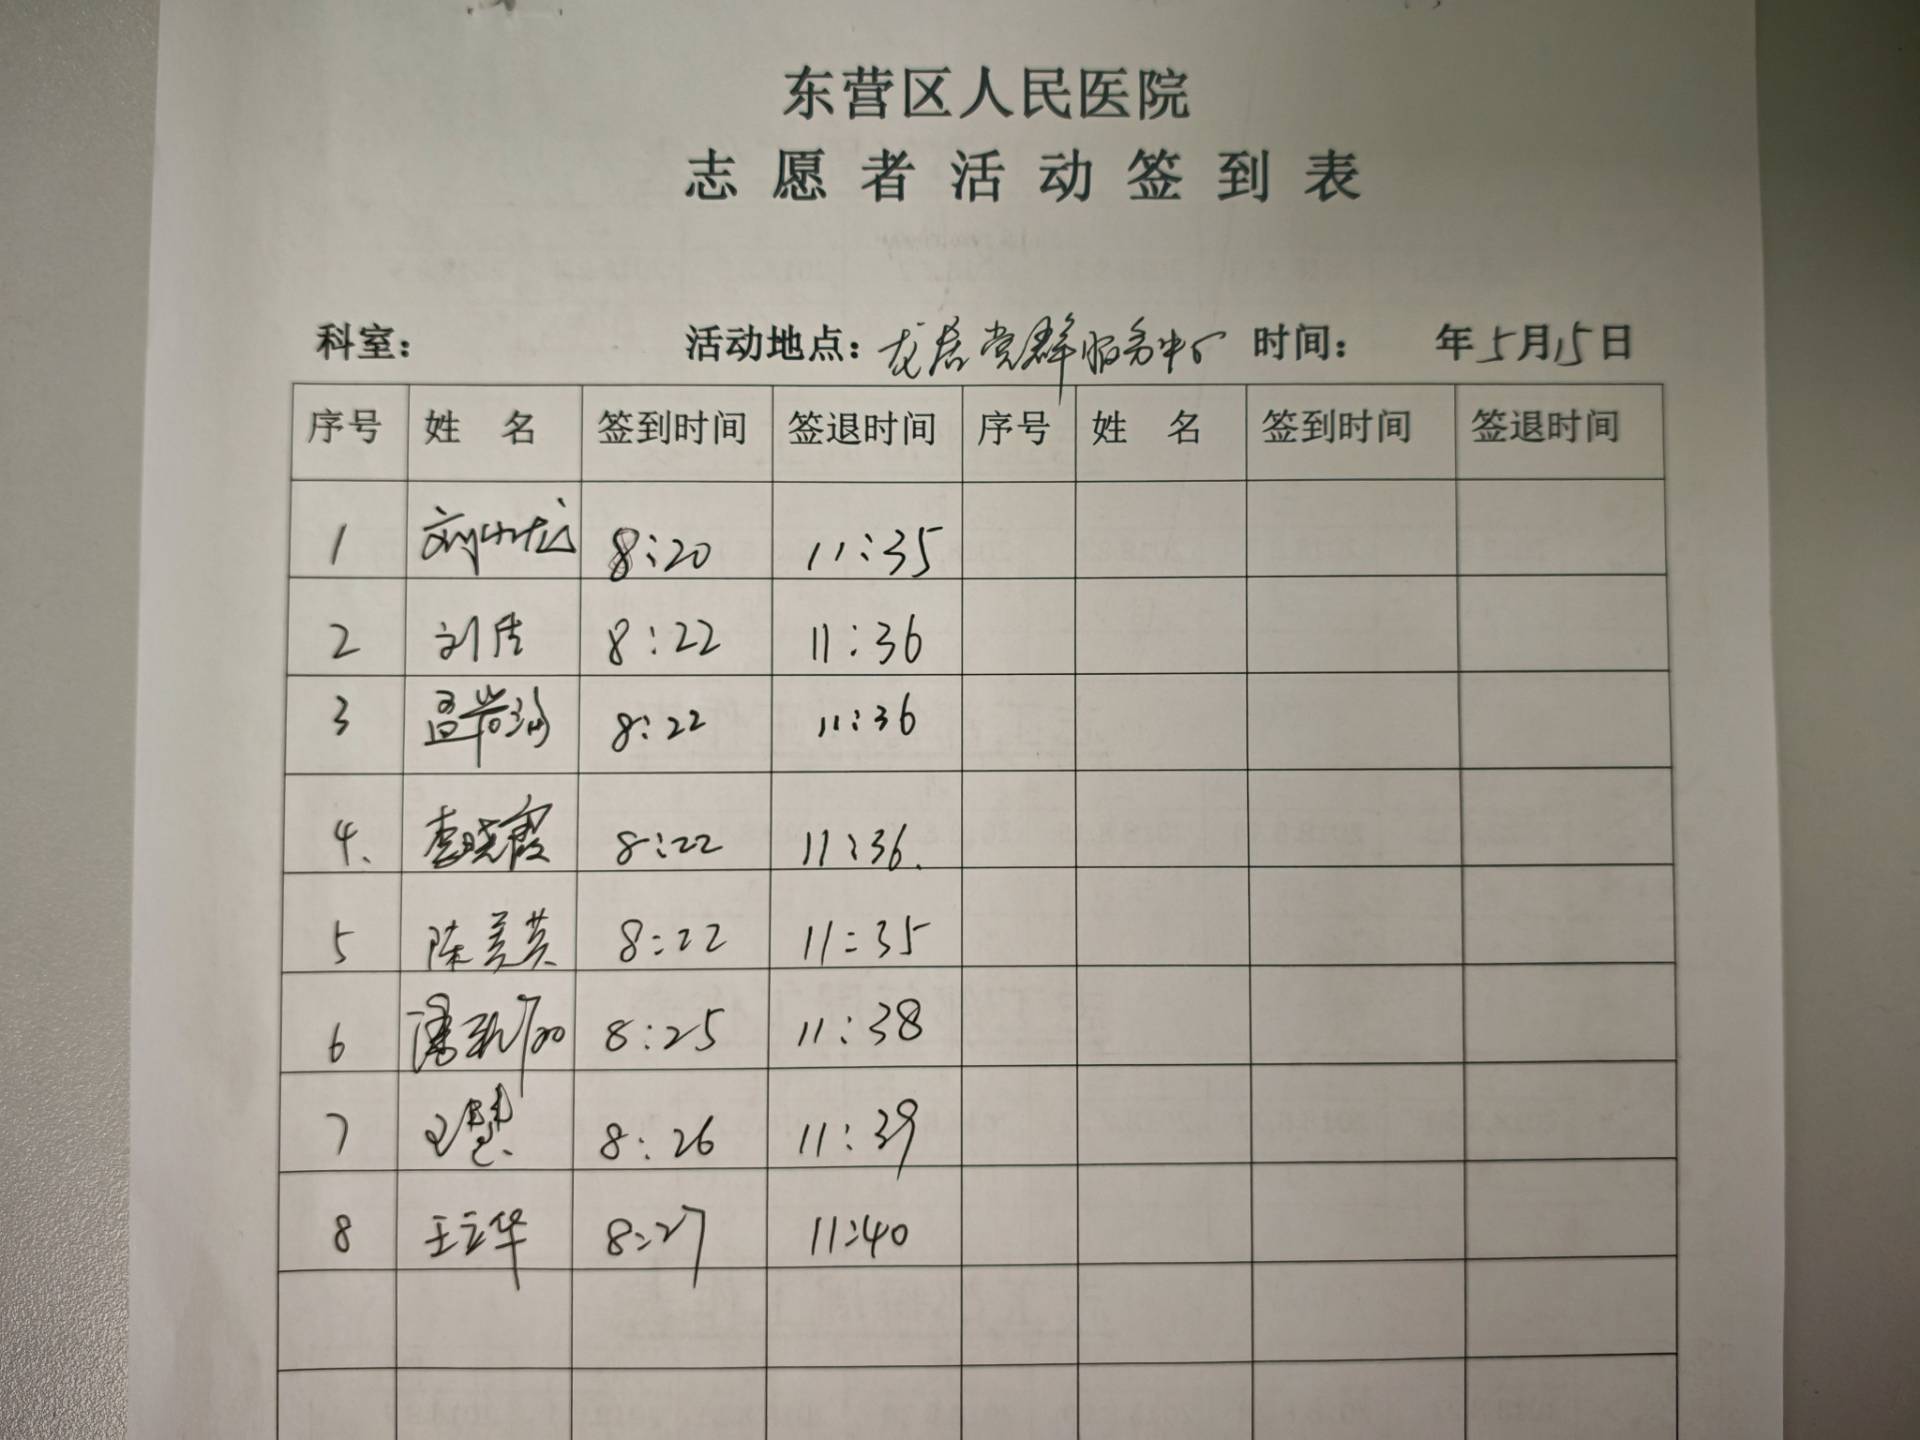 东营区人民医院
志愿者活动签到表
科室： 活动地点：龙居党群服务中心 时间： 年5月15日
序号 姓 名 签到时间 签退时间 序号 姓 名 签到时间 签退时间
1 刘小龙 8:20 11:35
2 刘洁 8:22 11:36
3 8:22 11:36
4、 李晓霞 8:22 11:36.
5 陈美英 8:22 11:35
6 8:25 11:38
7 王慧 8:26 11:39
8 王立华 8:27 11:40